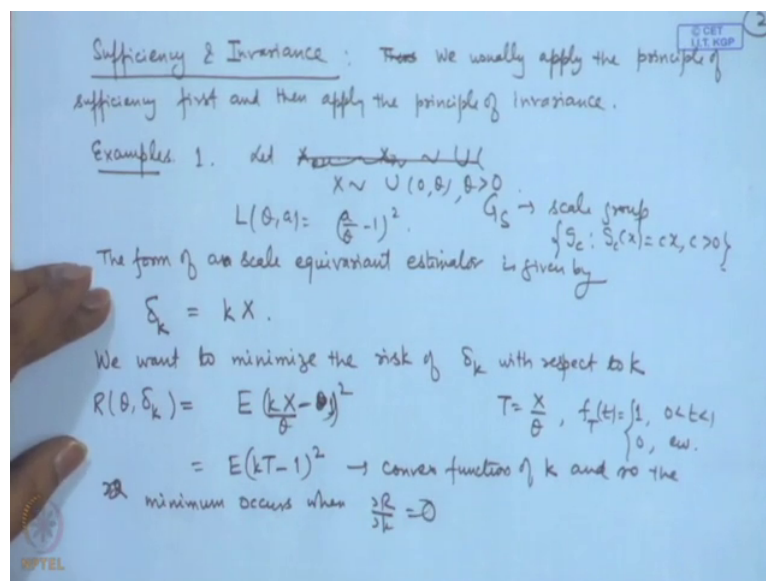 © CET
I.I.T. KGP
2
Sufficiency & Invariance : We usually apply the principle of
sufficiency first and then apply the principle of invariance.
Examples. 1. Let
X ~ U(0,θ), θ>0
L(θ,a) = (a/θ - 1)². G_S → scale group
{g_c : g_c(x) = cx, c>0}
The form of a scale equivariant estimator is given by
δ_k = kX.
We want to minimize the risk of δ_k with respect to k
R(θ, δ_k) = E(kX/θ - 1)² T = X/θ, f_T(t) = {1, 0<t<1
0, ew.
= E(kT-1)² → convex function of k and so the
minimum occurs when ∂R/∂k = 0
NPTEL